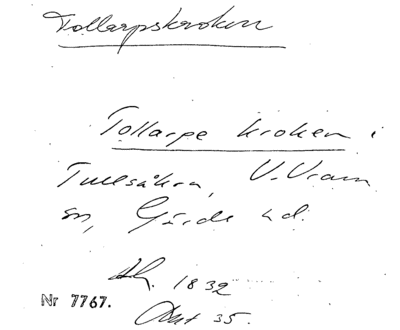 Tollarpskroken
Tollarpe kroken i
Tullsåkra, V. Vram
sn, Gärds hd.
1832
Nr 7767.
35.